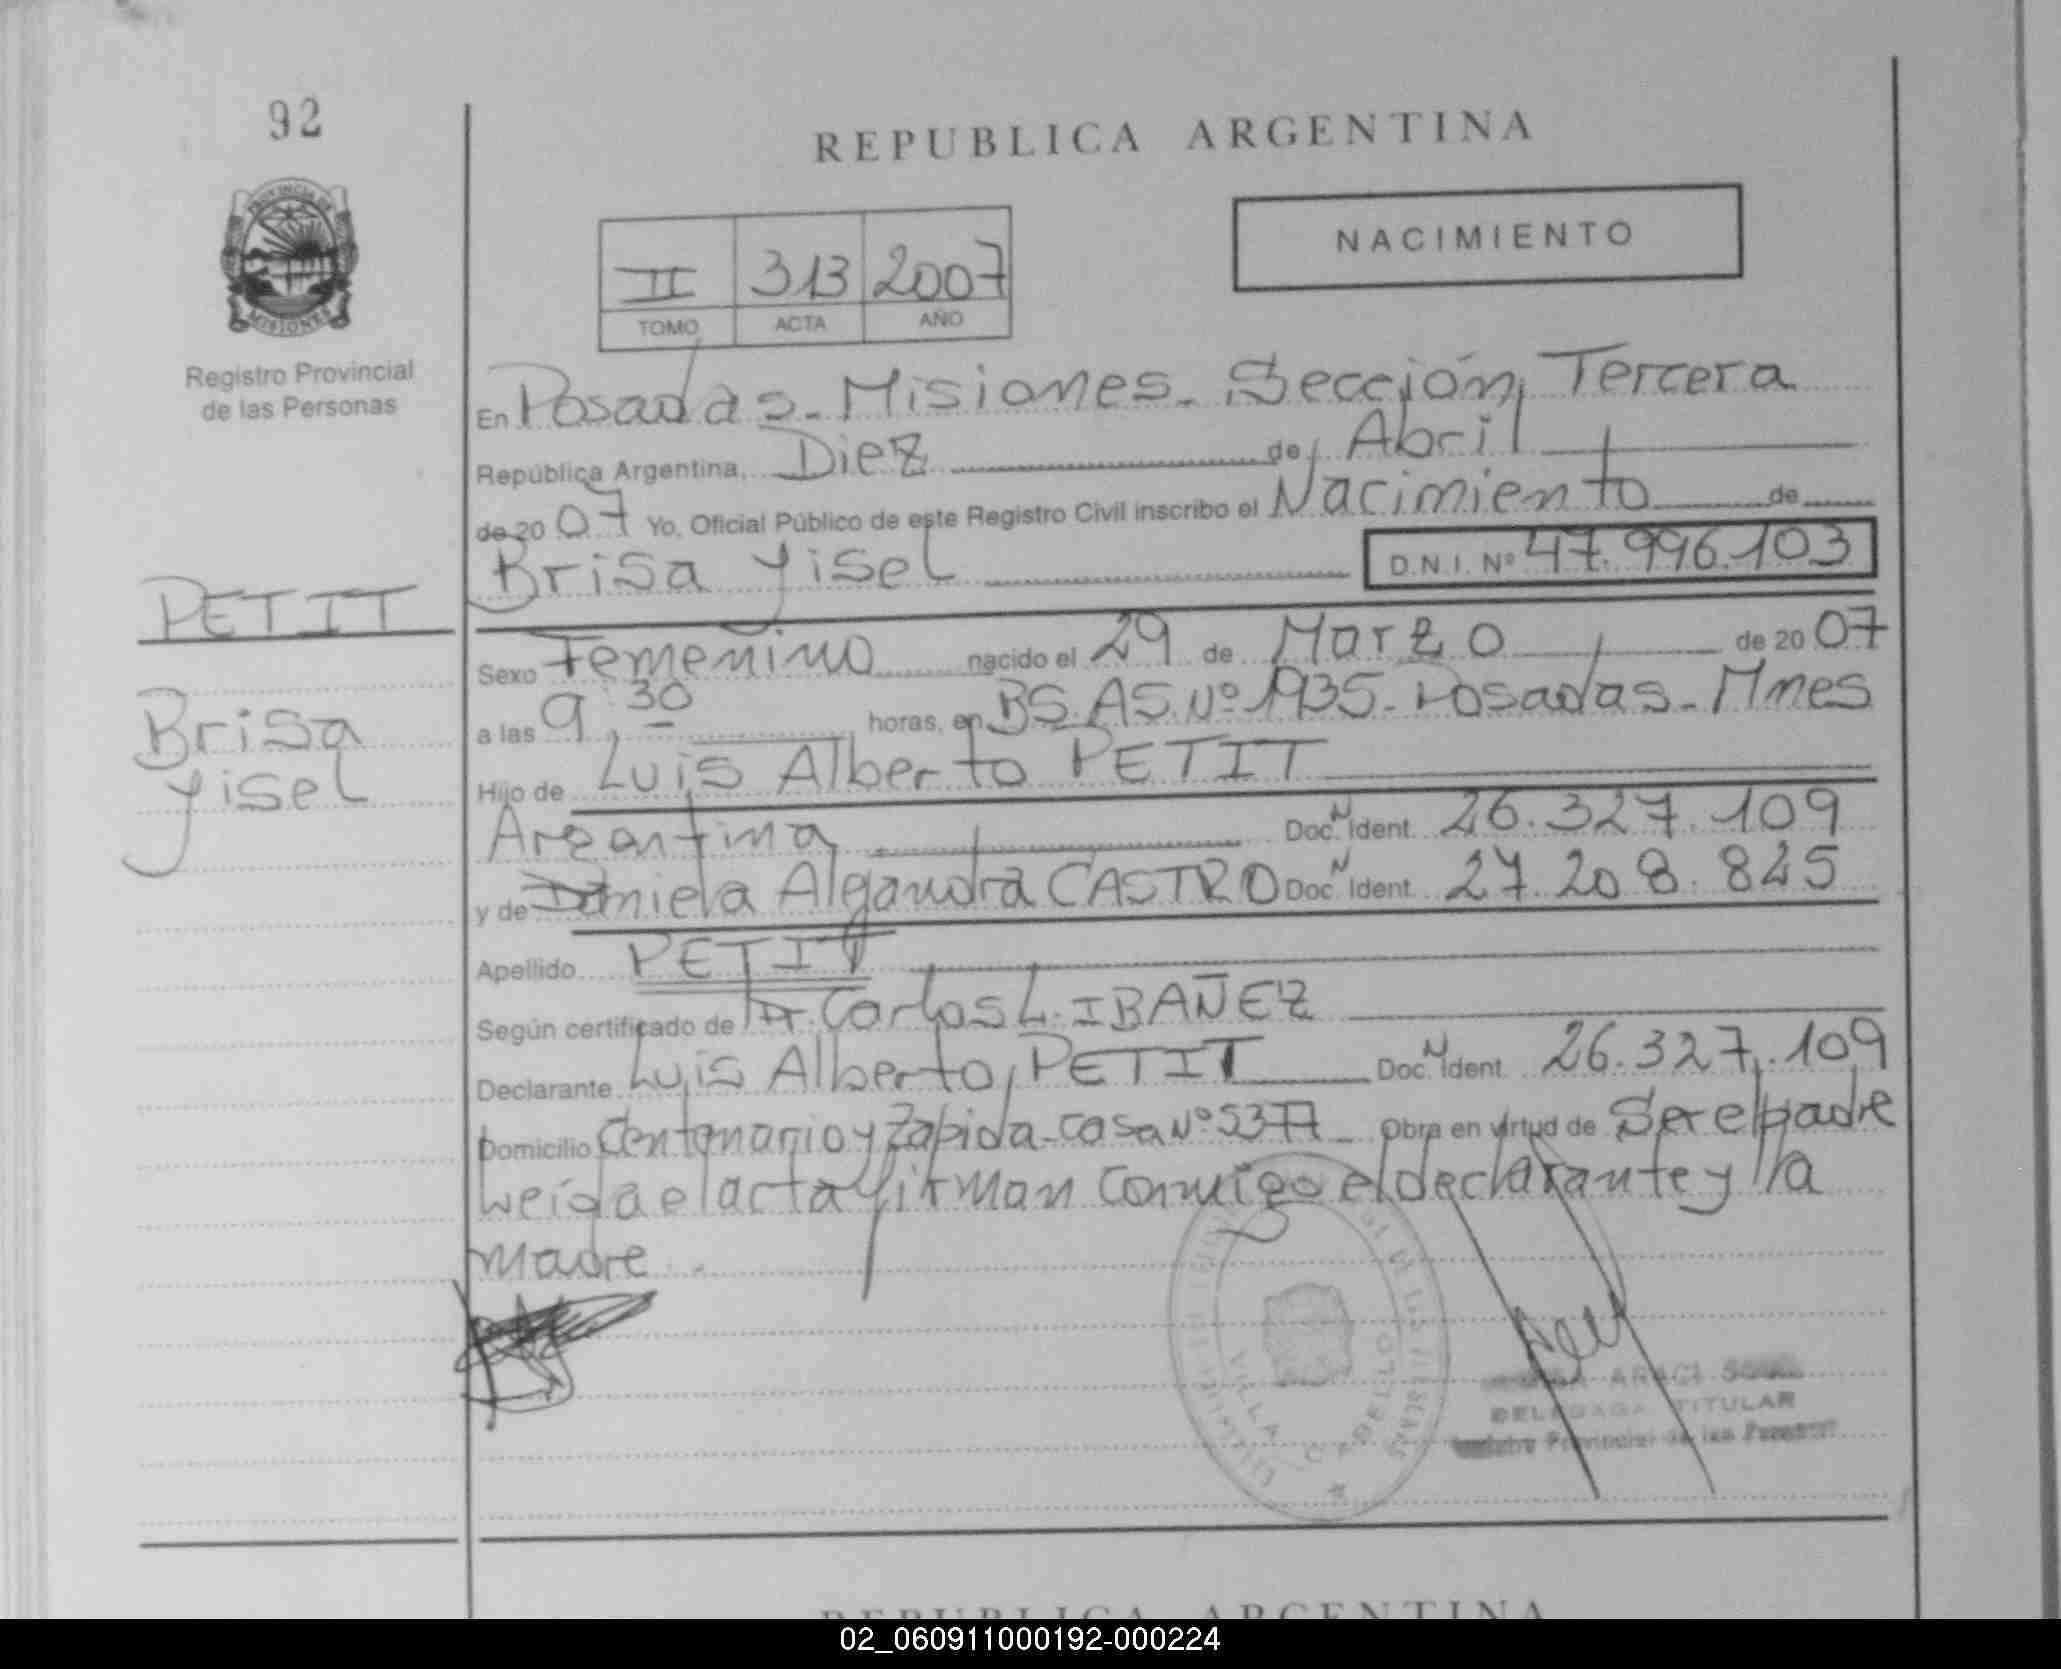 92
REPUBLICA ARGENTINA
PROVINCIA DE
MISIONES
Registro Provincial
de las Personas
II 313 2007
TOMO ACTA AÑO
NACIMIENTO
En Posadas - Misiones - Sección Tercera
República Argentina, Diez de Abril
de 2007 Yo, Oficial Público de este Registro Civil inscribo el Nacimiento de
Brisa Yisel D.N.I. Nº 47.996.103
PETIT
Brisa
Yisel
Sexo Femenino nacido el 29 de Marzo de 2007
a las 9:30 horas, en BS.AS. Nº 1935 - Posadas - Mnes
Hijo de Luis Alberto PETIT
Argentina Doc. N Ident. 26.327.109
y de Daniela Alejandra CASTRO Doc. N Ident. 27.208.825
Apellido PETIT
Según certificado de Dr. Carlos L. IBAÑEZ
Declarante Luis Alberto PETIT Doc. N Ident. 26.327.109
Domicilio Centenario y Zapiola - Casa Nº 5377 Obra en virtud de Ser el padre
Leída el acta firman conmigo el declarante y la
madre.
VILLA CABELLO
ARACI
DELEGADA TITULAR
Registro Provincial de las Personas
REPUBLICA ARGENTINA
02_060911000192-000224